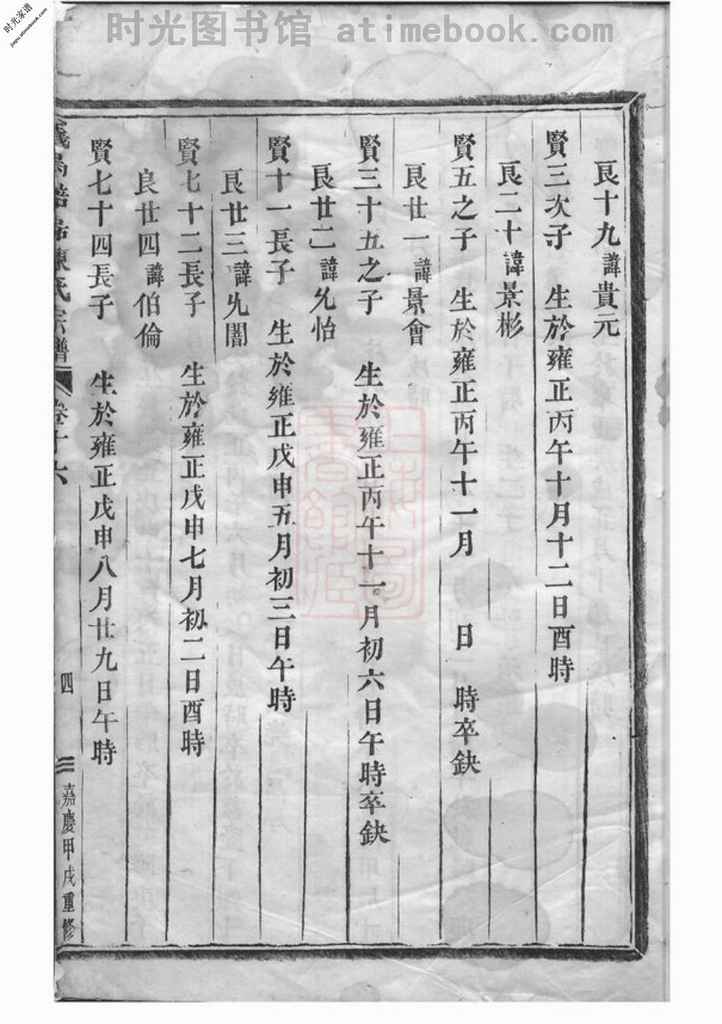 时光图书馆 - atimebook.com
时光家谱
jiapu.atimebook.com
良十九諱貴元
賢三次子 生於雍正丙午十月十二日酉時
良二十諱景彬
賢五之子 生於雍正丙午十一月 日 時卒缺
良廿一諱景會
賢三十五之子 生於雍正丙午十一月初六日午時卒缺
良廿二諱允怡
賢十一長子 生於雍正戊申五月初三日午時
良廿三諱允誾
賢七十二長子 生於雍正戊申七月初二日酉時
良廿四諱伯倫
賢七十四長子 生於雍正戊申八月廿九日午時
陳氏宗譜 卷十六 四 嘉慶甲戌重修